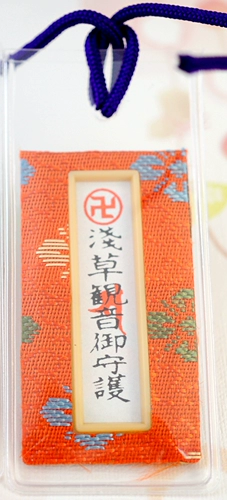 卍
淺草観音御守護